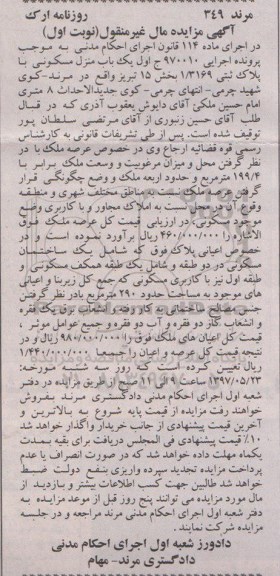 مرند ۳۴۹ روزنامه ارک
آگهی مزایده مال غیرمنقول(نوبت اول)
در اجرای ماده ۱۱۴ قانون اجرای احکام مدنی به موجب
پرونده اجرایی ۹۷۰۰۱۰ ج اول یک باب منزل مسکونی با
پلاک ثبتی ۱/۳۱۶۹ بخش ۱۵ تبریز واقع در مرند-کوی
شهید چرمی-انتهای چرمی- کوی جدیدالاحداث ۸ متری
امام حسین ملکی آقای داویوش یعقوب آذری که در قبال
طلب آقای حسین زنبوری از آقای مرتضی سلطان پور
توقیف شده است. پس از طی تشریفات قانونی به کارشناس
رسمی قوه قضائیه ارجاع وی در خصوص عرصه ملک با در
نظر گرفتن محل و میزان مرغوبیت و وسعت ملک برابر با
۱۹۹/۴ مترمربع و حدود اربعه ملک و وضع چگونگی قرار
گرفتن عرصه ملک نسبت به مناطق مختلف شهری و منطقه
وقوع آن در محل نسبت به املاک مجاور و با کاربری وضع
موجود مسکونی، در ارزیابی قیمت کل عرصه ملک فوق
الاشاره را ۴۶۰/۰۰۰/۰۰۰ ریال برآورد نموده است و در
خصوص اعیانی پلاک فوق که شامل یک ساختمان
مسکونی در دو طبقه و شامل یک طبقه همکف مسکونی و
طبقه اول نیز با کاربری مسکونی که جمع کل زیربنا و اعیانی
های موجود به مساحت حدود ۲۹۰ مترمربع بادر نظر گرفتن
جنس مصالح ساختمانی به کار رفته و انشعاب برق یک فقره
و انشعاب گاز دو فقره و آب دو فقره و جمیع عوامل موثر ،
قیمت کل اعیان های ملک فوق را ۹۸۰/۰۰۰/۰۰۰ ریال و در
نتیجه قیمت کل عرصه و اعیان را جمعا ۱/۴۴۰/۰۰۰/۰۰۰
ریال تعیین کرده است که روز سه شنبه مورخه:
۱۳۹۷/۰۵/۲۳ ساعت ۹ الی ۱۱ صبح از طریق مزایده در دفتر
شعبه اول اجرای احکام مدنی دادگستری مرند بفروش
خواهند رفت مزایده از قیمت پایه شروع به بالاترین و
آخرین قیمت پیشنهادی از جانب خریدار واگذار خواهد شد
۱۰٪ قیمت پیشنهادی فی المجلس دریافت برای بقیه بمدت
یکماه مهلت داده خواهد شد که در صورت انصراف یا عدم
پرداخت مزایده تجدید سپرده واریزی بنفع دولت ضبط
خواهد شد طالبین جهت کسب اطلاعات بیشتر و بازدید از
مال مورد مزایده می توانند پنج روز قبل از موعد مزایده به
دفتر شعبه اول اجرای احکام مدنی مرند مراجعه و در جلسه
مزایده شرکت نمایند .
دادورز شعبه اول اجرای احکام مدنی
دادگستری مرند- مهام